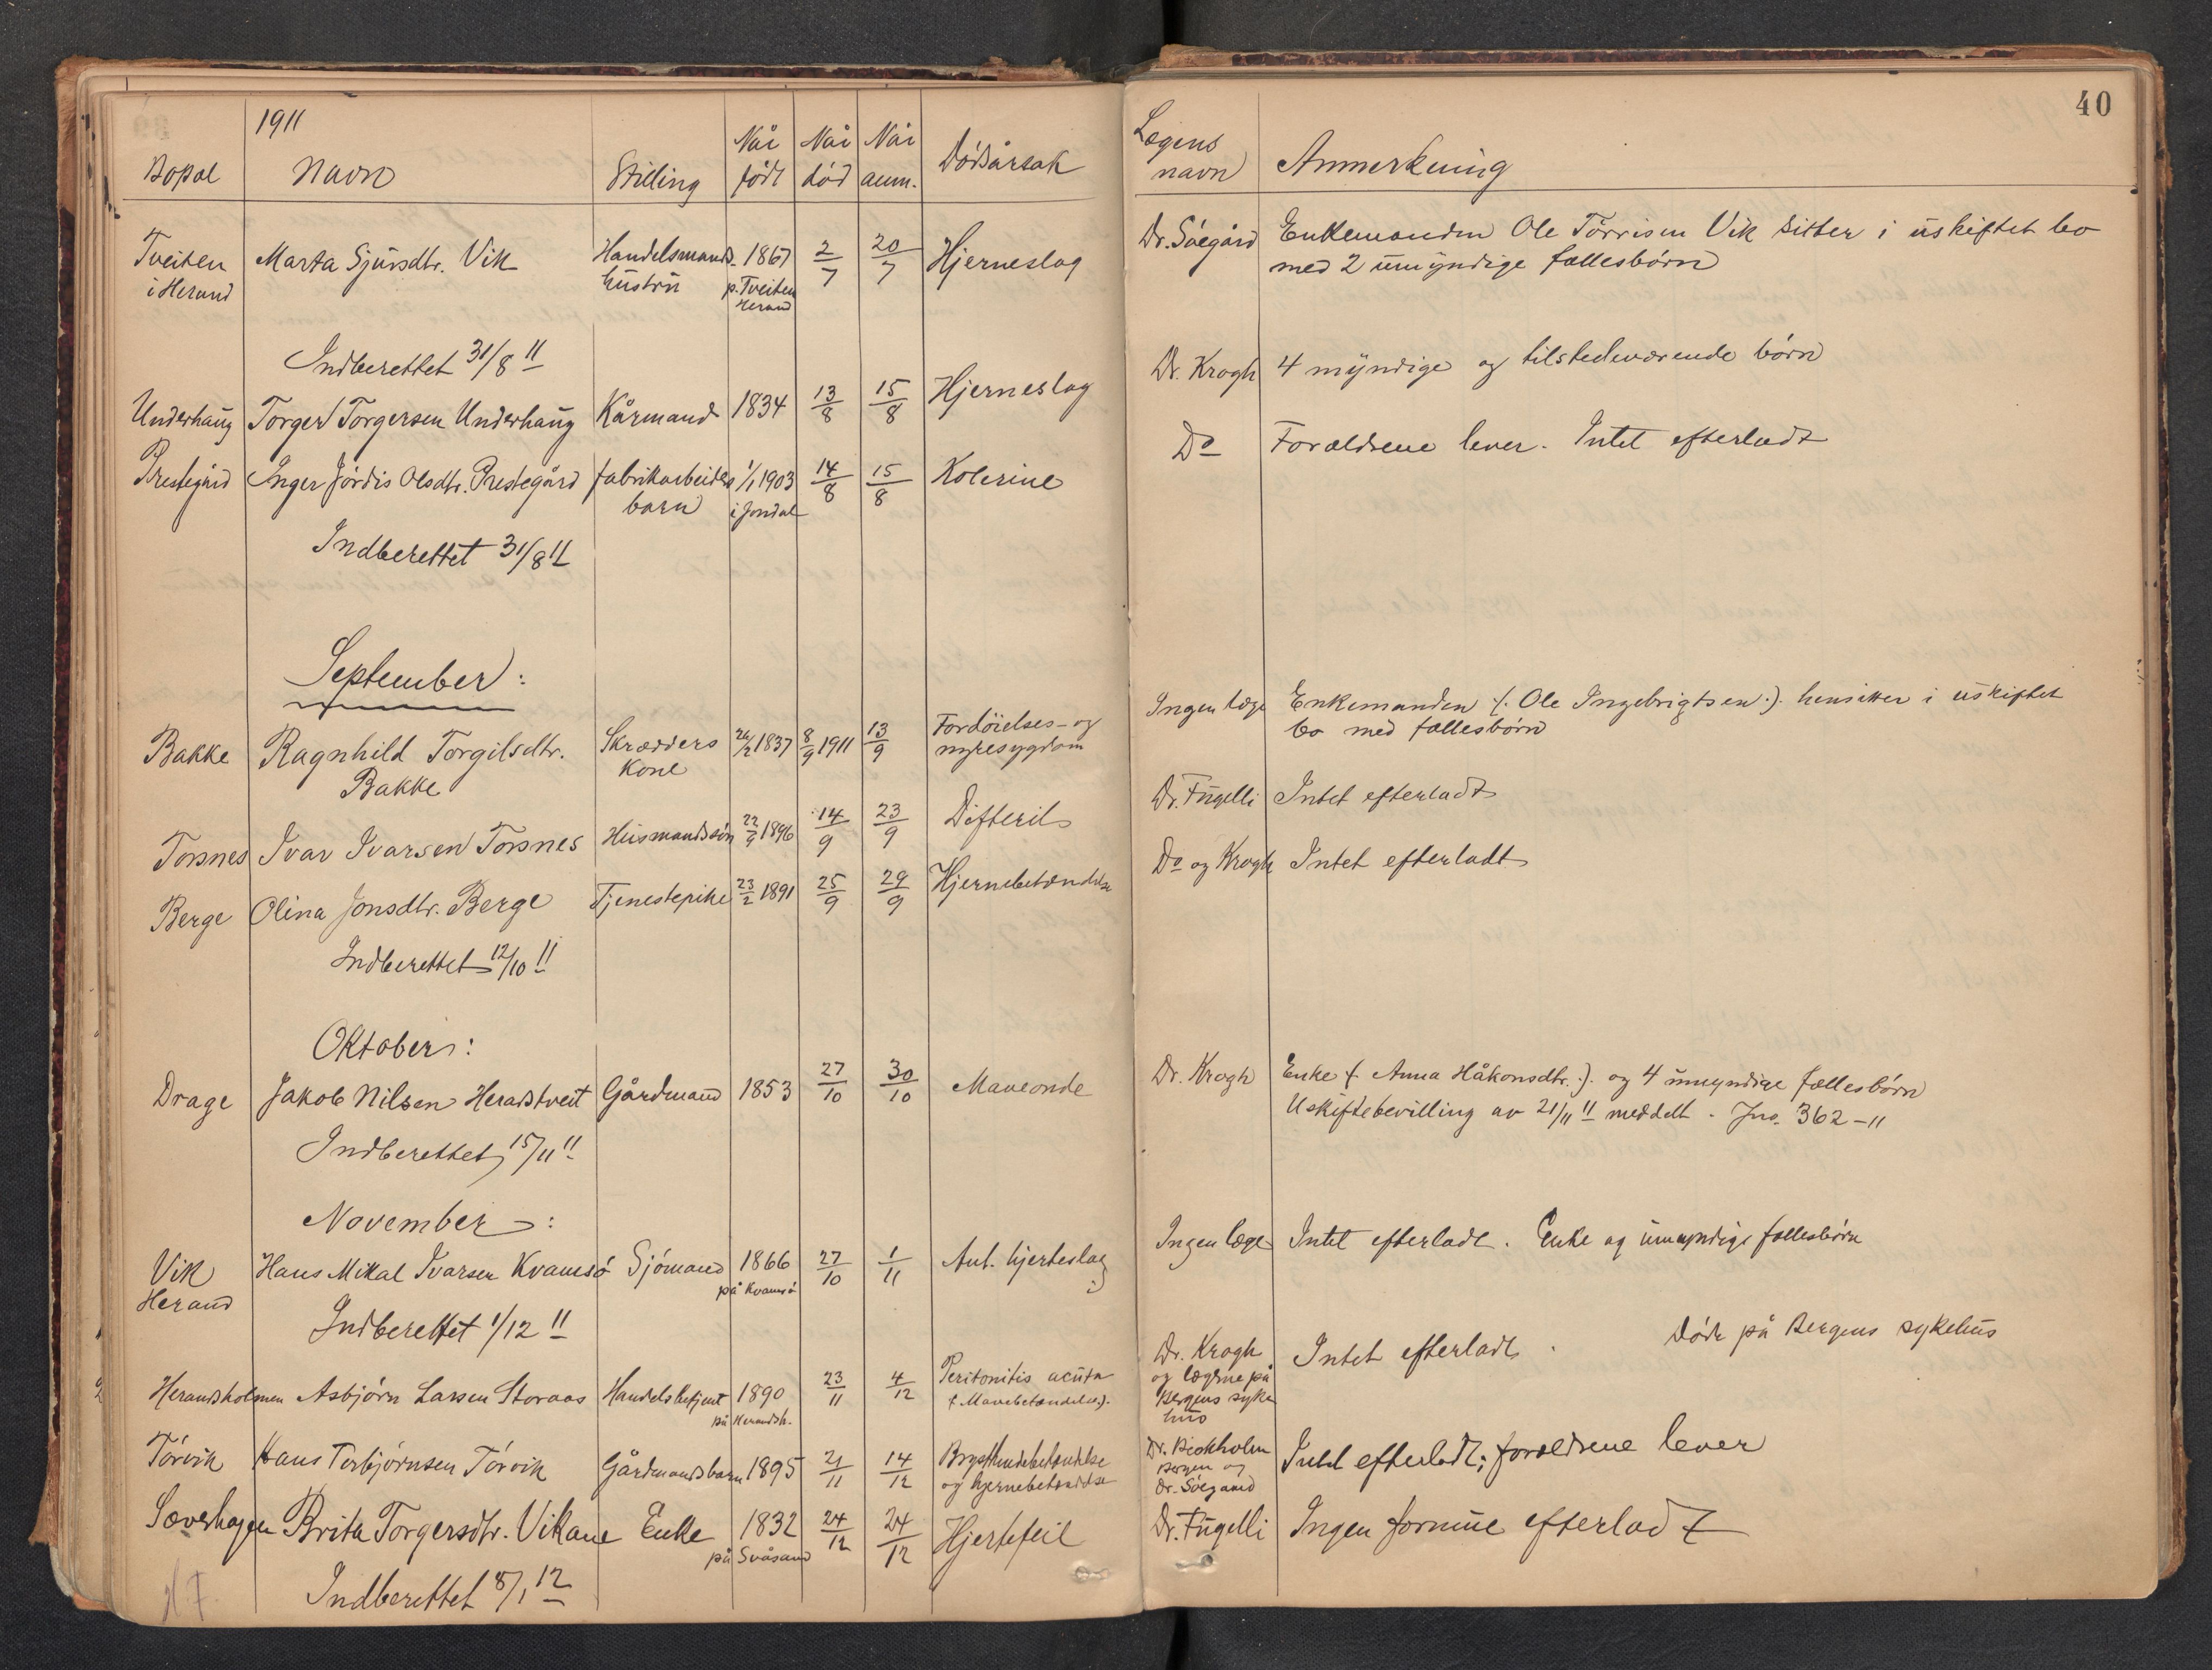 40
1911
Bopæl Navn Stilling Når født Når død Når anm. Dødsårsak Lægens navn Anmerkning
Tveiten Marta Sjursdtr. Vik Handelsmands- 1867 2/7 20/7 Hjerneslag Dr. Söegård Enkemanden Ole Törrisen Vik sitter i uskiftet bo
i Herand hustru p. Tveiten Herand med 2 umyndige fællesbörn
Indberettet 31/8 11
Underhaug Torger Torgersen Underhaug Kårmand 1834 13/8 15/8 Hjerneslag Dr. Krogh 4 myndige og tilstedeværende börn
Prestegård Inger Jördis Olsdtr. Prestegård fabrikarbeiders 1/1 1903 14/8 15/8 Kolerine Do Forældrene lever. Intet efterladt
barn i Jondal
Indberettet 31/8 11
September:
Bakke Ragnhild Torgilsdtr. Skrædders 1837 8/9 1911 13/9 Fordöielses- og Ingen læge Enkemanden (: Ole Ingebrigtsen :) hensitter i uskiftet
Bakke kone nyresygdom bo med fællesbörn
Torsnes Ivar Ivarsen Torsnes Husmandssön 22/9 1896 14/9 23/9 Difterit Dr. Fugelli Intet efterladt
Berge Olina Jonsdtr. Berge Tjenestepike 23/2 1891 25/9 29/9 Hjernebetændelse Do og Krogh Intet efterladt
Indberettet 12/10 11
Oktober:
Drage Jakob Nilsen Heradstveit Gårdmand 1853 27/10 30/10 Maveonde Dr. Krogh Enke (: Anna Håkonsdtr. :) og 4 umyndige fællesbörn
Uskiftebevilling av 21/11 11 meddelt. Jno. 362-11
Indberettet 15/11 11
November:
Vik Hans Mikal Ivarsen Kvamsö Sjömand 1866 27/10 1/11 Ant. hjerteslag Ingen læge Intet efterladt. Enke og umyndige fællesbörn
Herand på Kvamsö
Indberettet 1/12 11
Herandsholmen Asbjørn Larsen Storaas Handelsbetjent 1890 23/11 4/12 Peritonitis acuta Dr. Krogh Intet efterladt. Döde på Bergens sykehus
på Herandsh. (: Mavebetændelse :) og lægerne på
Bergens syke
hus
Törvik Hans Torbjørnsen Törvik Gårdmandsbarn 1895 21/11 14/12 Brysthindebetændelse Intet efterladt; forældrene lever
og hjernebetændelse Bergen og
Dr. Söegaard
Sæverhagen Brita Torgersdtr. Vikane Enke 1832 24/12 24/12 Hjertefeil Dr. Fugelli Ingen formue efterladt
på Svåsand
Indberettet 8/1 12